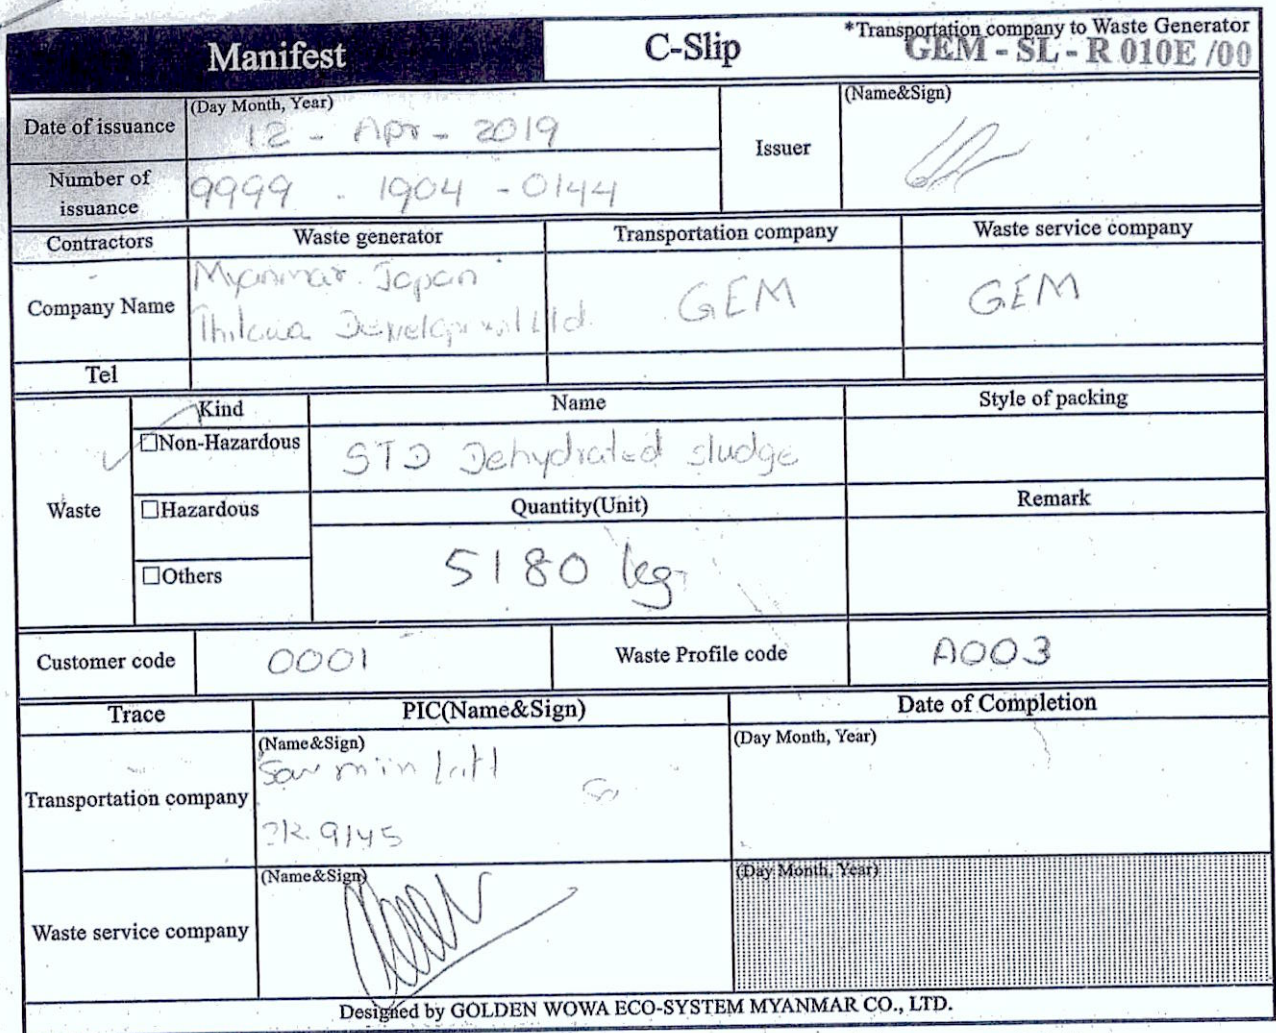 Manifest C-Slip *Transportation company to Waste Generator
GEM - SL - R 010E /00
Date of issuance (Day Month, Year) 12 - Apr - 2019
Issuer (Name&Sign)
Number of issuance 9999 - 1904 - 0144
Contractors Waste generator Transportation company Waste service company
Company Name Myanmar Japan GEM GEM
Thilawa Ltd.
Tel
Waste Kind Name Style of packing
☐Non-Hazardous STD Dehydrated sludge
☐Hazardous Quantity(Unit) Remark
☐Others 5180 kg
Customer code 0001 Waste Profile code A003
Trace PIC(Name&Sign) Date of Completion
Transportation company (Name&Sign) (Day Month, Year)
min
9145
Waste service company (Name&Sign) (Day Month, Year)
Designed by GOLDEN WOWA ECO-SYSTEM MYANMAR CO., LTD.